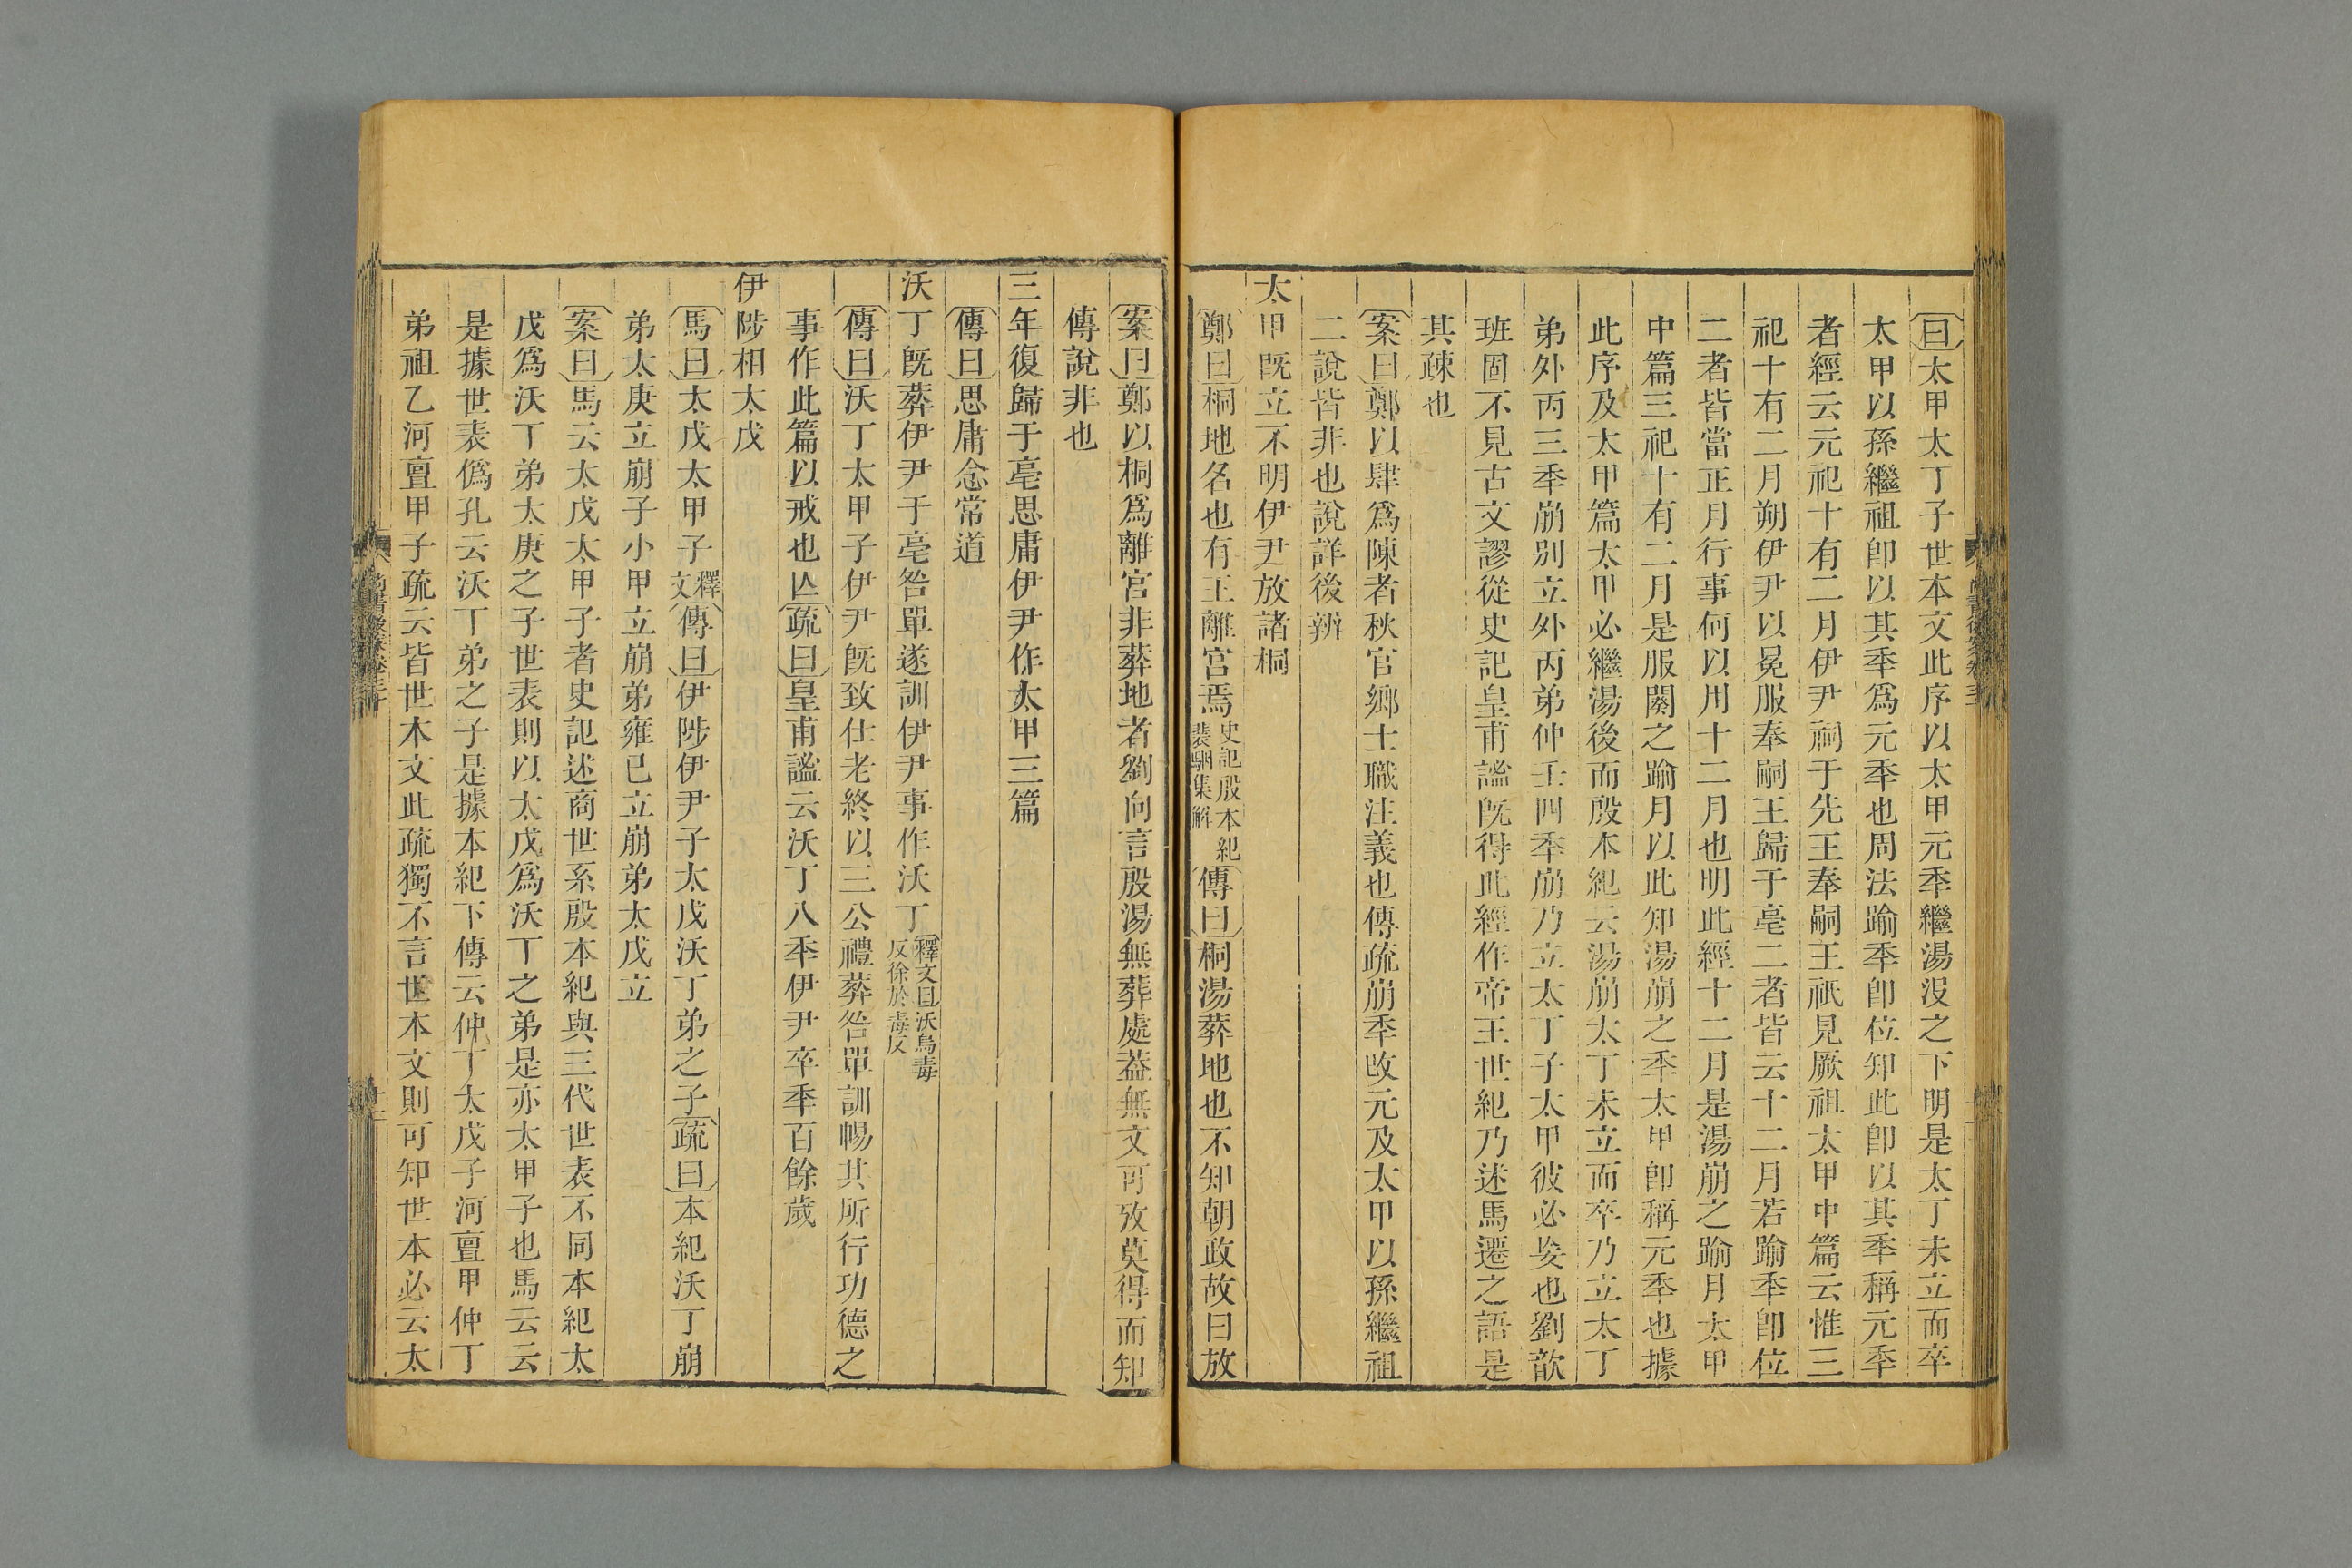 曰太甲太丁子世本文此序以太甲元秊繼湯沒之下明是太丁未立而卒
太甲以孫繼祖卽以其秊爲元秊也周法踰秊卽位知此卽以其秊稱元秊
者經云元祀十有二月伊尹祠于先王奉嗣王祇見厥祖太甲中篇云惟三
祀十有二月朔伊尹以冕服奉嗣王歸于亳二者皆云十二月若踰秊卽位
二者皆當正月行事何以用十二月也明此經十二月是湯崩之踰月太甲
中篇三祀十有二月是服闋之踰月以此知湯崩之秊太甲卽稱元秊也據
此序及太甲篇太甲必繼湯後而殷本紀云湯崩太丁未立而卒乃立太丁
弟外丙三秊崩别立外丙弟仲壬四秊崩乃立太丁子太甲彼必妄也劉歆
班固不見古文謬從史記皇甫謐旣得此經作帝王世紀乃述馬遷之語是
其疎也
案曰鄭以肆爲陳者秋官鄉士職注義也傳疏崩秊改元及太甲以孫繼祖
二說皆非也說詳後辨
太甲旣立不明伊尹放諸桐
鄭曰桐地名也有王離宫焉史記殷本紀裴駰集解傳曰桐湯葬地也不知朝政故曰放
案曰鄭以桐爲離宮非葬地者劉向言殷湯無葬處葢無文可攷莫得而知
傳說非也
三年復歸于亳思庸伊尹作太甲三篇
傳曰思庸念常道
沃丁旣葬伊尹于亳咎單遂訓伊尹事作沃丁釋文曰沃烏毒反徐於毒反
傳曰沃丁太甲子伊尹旣致仕老終以三公禮葬咎單訓暢其所行功德之
事作此篇以戒也亾疏曰皇甫謐云沃丁八秊伊尹卒秊百餘歲
伊陟相太戊
馬曰太戊太甲子釋文傳曰伊陟伊尹子太戊沃丁弟之子疏曰本紀沃丁崩
弟太庚立崩子小甲立崩弟雍己立崩弟太戊立
案曰馬云太戊太甲子者史記述商世系殷本紀與三代世表不同本紀太
戊爲沃丁弟太庚之子世表則以太戊爲沃丁之弟是亦太甲子也馬云云
是據世表僞孔云沃丁弟之子是據本紀下傳云仲丁太戊子河亶甲仲丁
弟祖乙河亶甲子疏云皆世本文此疏獨不言世本文則可知世本必云太